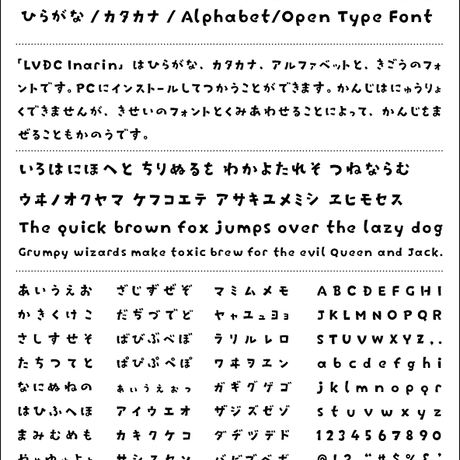 ひらがな / カタカナ / Alphabet/Open Type Font
「LVDC Inarin」はひらがな、カタカナ、アルファベットと、きごうのフォ
ントです。PCにインストールしてつかうことができます。かんじはにゅうりょ
くできませんが、きせいのフォントとくみあわせることによって、かんじをま
ぜることもかのうです。
いろはにほへと ちりぬるを わかよたれそ つねならむ
ウヰノオクヤマ ケフコエテ アサキユメミシ ヱヒモセス
The quick brown fox jumps over the lazy dog
Grumpy wizards make toxic brew for the evil Queen and Jack.
あいうえお ざじずぜぞ マミムメモ ABCDEFGHI
かきくけこ だぢづでど ヤャユュヨョ JKLMNOPQR
さしすせそ ばびぶべぼ ラリルレロ STUVWXYZ,.
たちつてと ぱぴぷぺぽ ワヰヲヱン abcdefghi
なにぬねの ぁぃぅぇぉっ ガギグゲゴ jklmnopqr
はひふへほ アイウエオ ザジズゼゾ stuvwxyz
まみむめも カキクケコ ダヂヅデド 1234567890